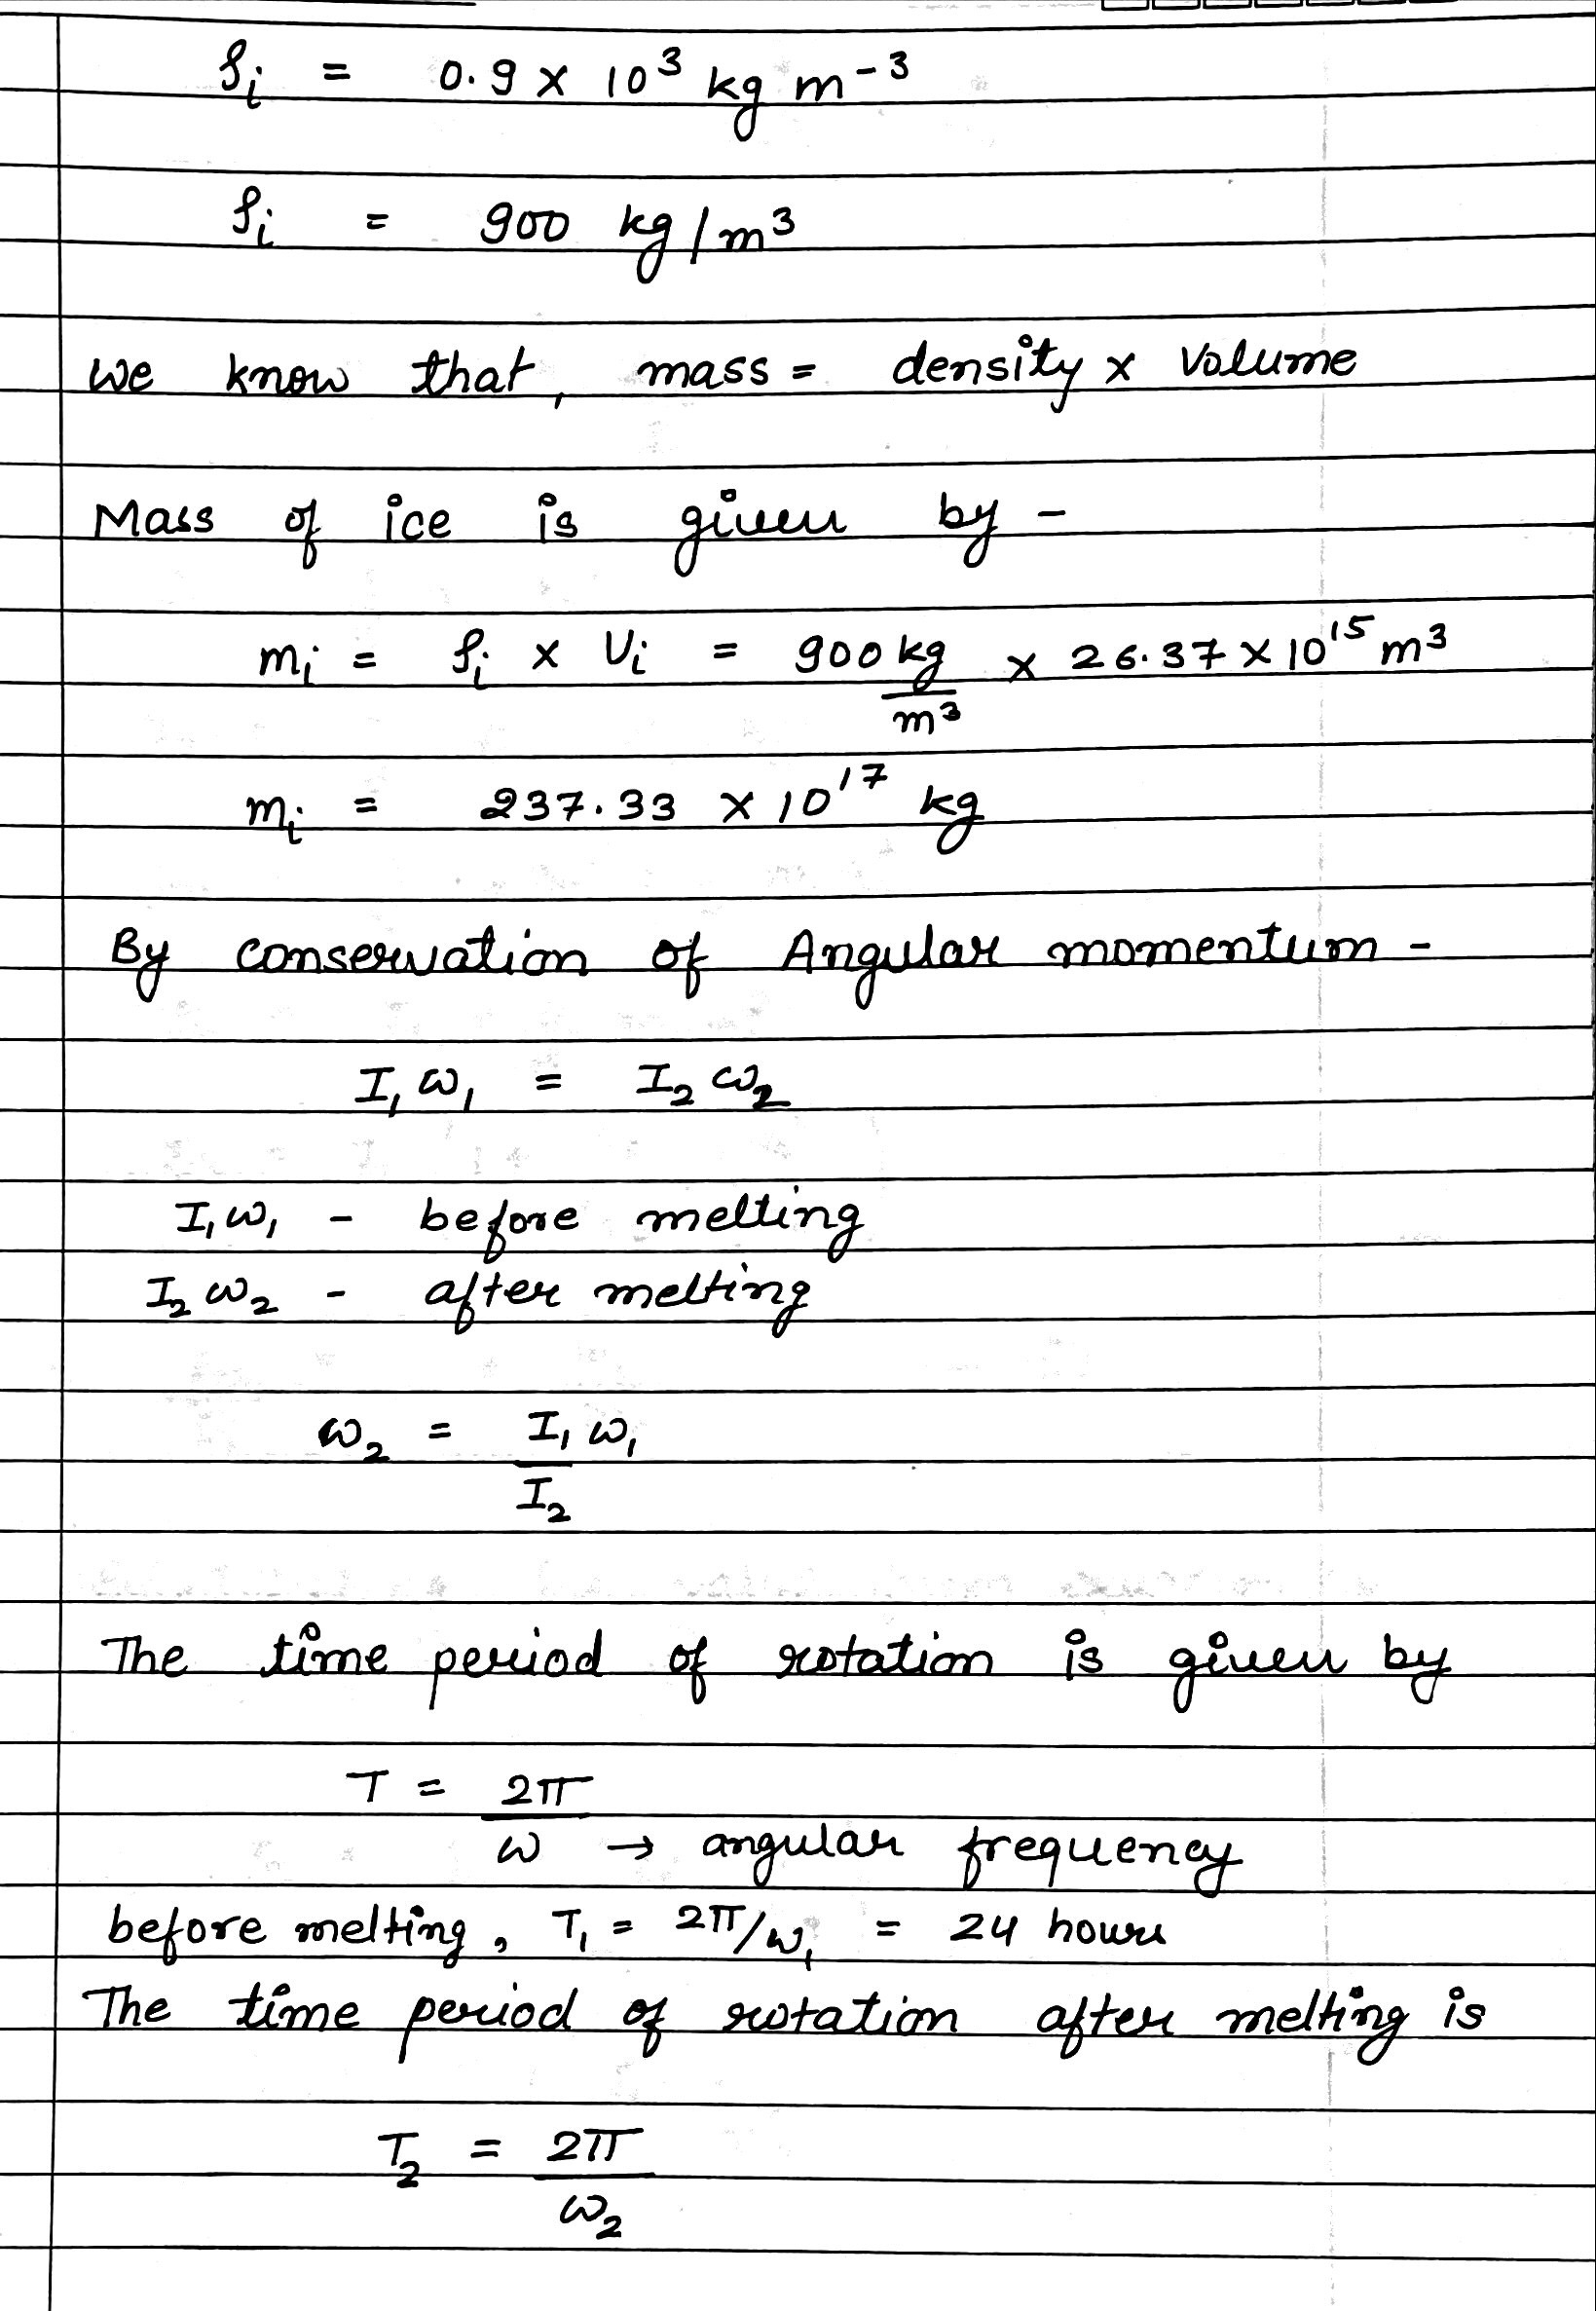 ρi = 0.9 × 10³ kg m⁻³
ρi = 900 kg/m³
we know that, mass = density × Volume
Mass of ice is given by -
mi = ρi × Vi = 900 kg/m³ × 26.37 × 10¹⁵ m³
mi = 237.33 × 10¹⁷ kg
By conservation of Angular momentum -
I₁ ω₁ = I₂ ω₂
I₁ ω₁ - before melting
I₂ ω₂ - after melting
ω₂ = I₁ ω₁ / I₂
The time period of rotation is given by
T = 2π / ω → angular frequency
before melting, T₁ = 2π/ω₁ = 24 hours
The time period of rotation after melting is
T₂ = 2π / ω₂